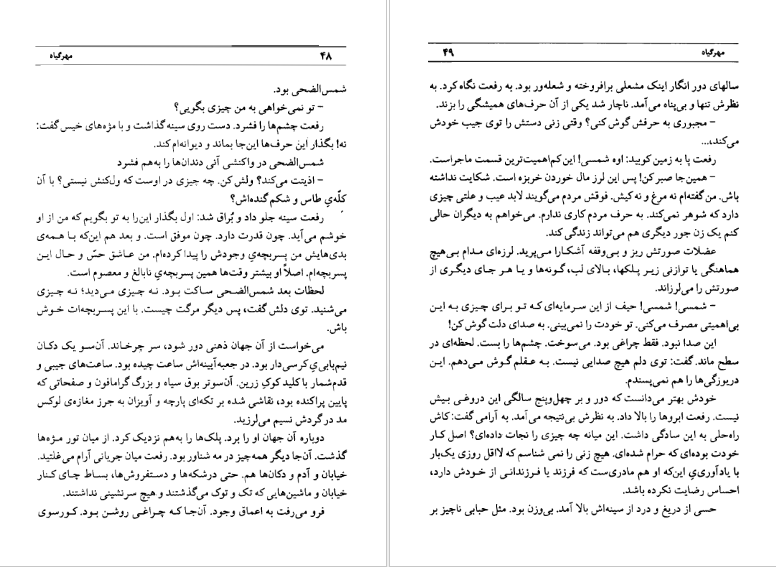 ۴۸ مهرگیاه
شمس‌الضحی بود.
– تو نمی‌خواهی به من چیزی بگویی؟
رفعت چشم‌ها را فشرد. دست روی سینه گذاشت و با مژه‌های خیس گفت:
نه! بگذار این حرف‌ها این‌جا بماند و دیوانه‌ام کند.
شمس‌الضحی در واکنشی آنی دندان‌ها را به‌هم فشرد
– اذیتت می‌کند؟ ولش کن. چه چیزی در اوست که ول‌کنش نیستی؟ با آن
کلّه‌ی طاس و شکم گنده‌اش؟
رفعت سینه جلو داد و بُراق شد: اول بگذار این‌را به تو بگویم که من از او
خوشم می‌آید. چون قدرت دارد. چون موفق است. و بعد هم این‌که با همه‌ی
بدی‌هایش من پسربچه‌ی وجودش را پیدا کرده‌ام. من عاشق حسّ و حال این
پسربچه‌ام. اصلاً او بیشتر وقت‌ها همین پسربچه‌ی نابالغ و معصوم است.
لحظات بعد شمس‌الضحی ساکت بود. نه چیزی می‌دید؛ نه چیزی
می‌شنید. توی دلش گفت، پس دیگر مرگت چیست. با این پسربچه‌ات خوش
باش.
می‌خواست از آن جهان ذهنی دور شود، سر چرخاند. آن‌سو یک دکان
نیم‌بابی کرسی‌دار بود. در جعبه‌آیینه‌اش ساعت چیده بود. ساعت‌های جیبی و
قدم‌شمار با کلید کوکِ زرین. آن‌سوتر بوق سیاه و بزرگ گرامافون و صفحاتی که
پایین پراکنده بود، نقاشی شده بر تکه‌ای پارچه و آویزان به جرز مغازه‌ی لوکس
مد در گردش نسیم می‌لرزید.
دوباره آن جهان او را برد. پلک‌ها را به‌هم نزدیک کرد. از میان تور مژه‌ها
گذشت. آن‌جا دیگر همه‌چیز در مه شناور بود. رفعت میان جریانی آرام می‌غلتید.
خیابان و آدم و دکان‌ها هم. حتی درشکه‌ها و دستفروش‌ها، بساط چای کنار
خیابان و ماشین‌هایی که تک و توک می‌گذشتند و هیچ سرنشینی نداشتند.
فرو می‌رفت به اعماق وجود. آن‌جا که چراغی روشن بود. کورسوی
مهرگیاه ۴۹
سالهای دور انگار اینک مشعلی برافروخته و شعله‌ور بود. به رفعت نگاه کرد. به
نظرش تنها و بی‌پناه می‌آمد. ناچار شد یکی از آن حرف‌های همیشگی را بزند.
– مجبوری به حرفش گوش کنی؟ وقتی زنی دستش را توی جیب خودش
می‌کند،...
رفعت پا به زمین کوبید: اوه شمسی! این کم‌اهمیت‌ترین قسمت ماجراست.
– همین‌جا صبر کن! پس این لرز مال خوردن خربزه است. شکایت نداشته
باش. من گفته‌ام نه مرغ و نه کیش. فوقش مردم می‌گویند لابد عیب و علتی چیزی
دارد که شوهر نمی‌کند. به حرف مردم کاری ندارم. می‌خواهم به دیگران حالی
کنم یک زن جور دیگری هم می‌تواند زندگی کند.
عضلات صورتش ریز و بی‌وقفه آشکارا می‌پرید. لرزه‌ای مدام بی‌هیچ
هماهنگی یا توازنی زیر پلکها، بالای لب، گونه‌ها و یا هر جای دیگری از
صورتش را می‌لرزاند.
– شمسی! شمسی! حیف از این سرمایه‌ای که تو برای چیزی به این
بی‌اهمیتی مصرف می‌کنی. تو خودت را نمی‌بینی. به صدای دلت گوش کن!
این صدا نبود. فقط چراغی بود. می‌سوخت. چشم‌ها را بست. لحظه‌ای در
سطح ماند. گفت: توی دلم هیچ صدایی نیست. به عقلم گوش می‌دهم. این
دریوزگی‌ها را هم نمی‌پسندم.
خودش بهتر می‌دانست که دور و بر چهل‌وپنج سالگی این دروغی بیش
نیست. رفعت ابروها را بالا داد. به نظرش بی‌نتیجه می‌آمد. به آرامی گفت: کاش
راه‌حلی به این سادگی داشت. این میانه چه چیزی را نجات داده‌ای؟ اصل کار
خودت بوده‌ای که حرام شده‌ای. هیچ زنی را نمی شناسم که لااقل روزی یک‌بار
با یادآوریِ این‌که او هم مادری‌ست که فرزند یا فرزندانی از خودش دارد،
احساس رضایت نکرده باشد.
حسی از دریغ و درد از سینه‌اش بالا آمد. بی‌وزن بود. مثل حبابی ناچیز بر